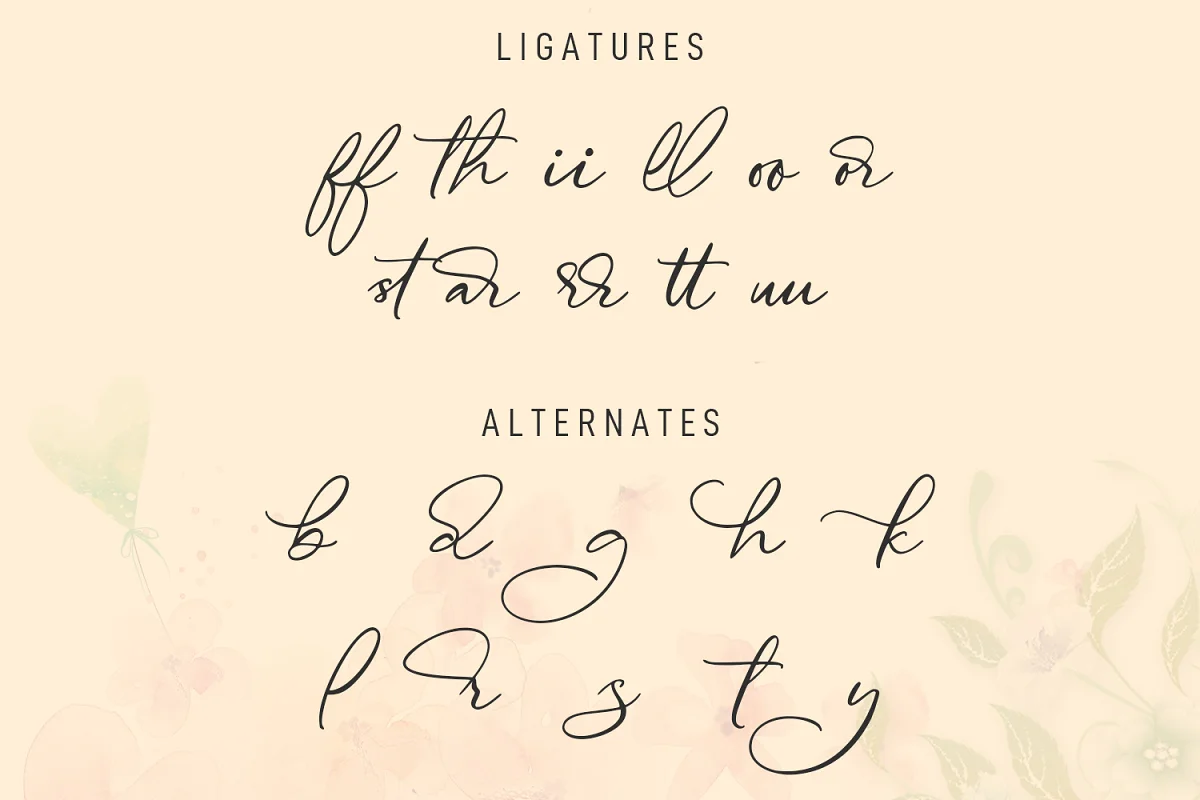 LIGATURES
ff th ii ll oo or
st ar rr tt uu
ALTERNATES
b d g h k
l r s t y